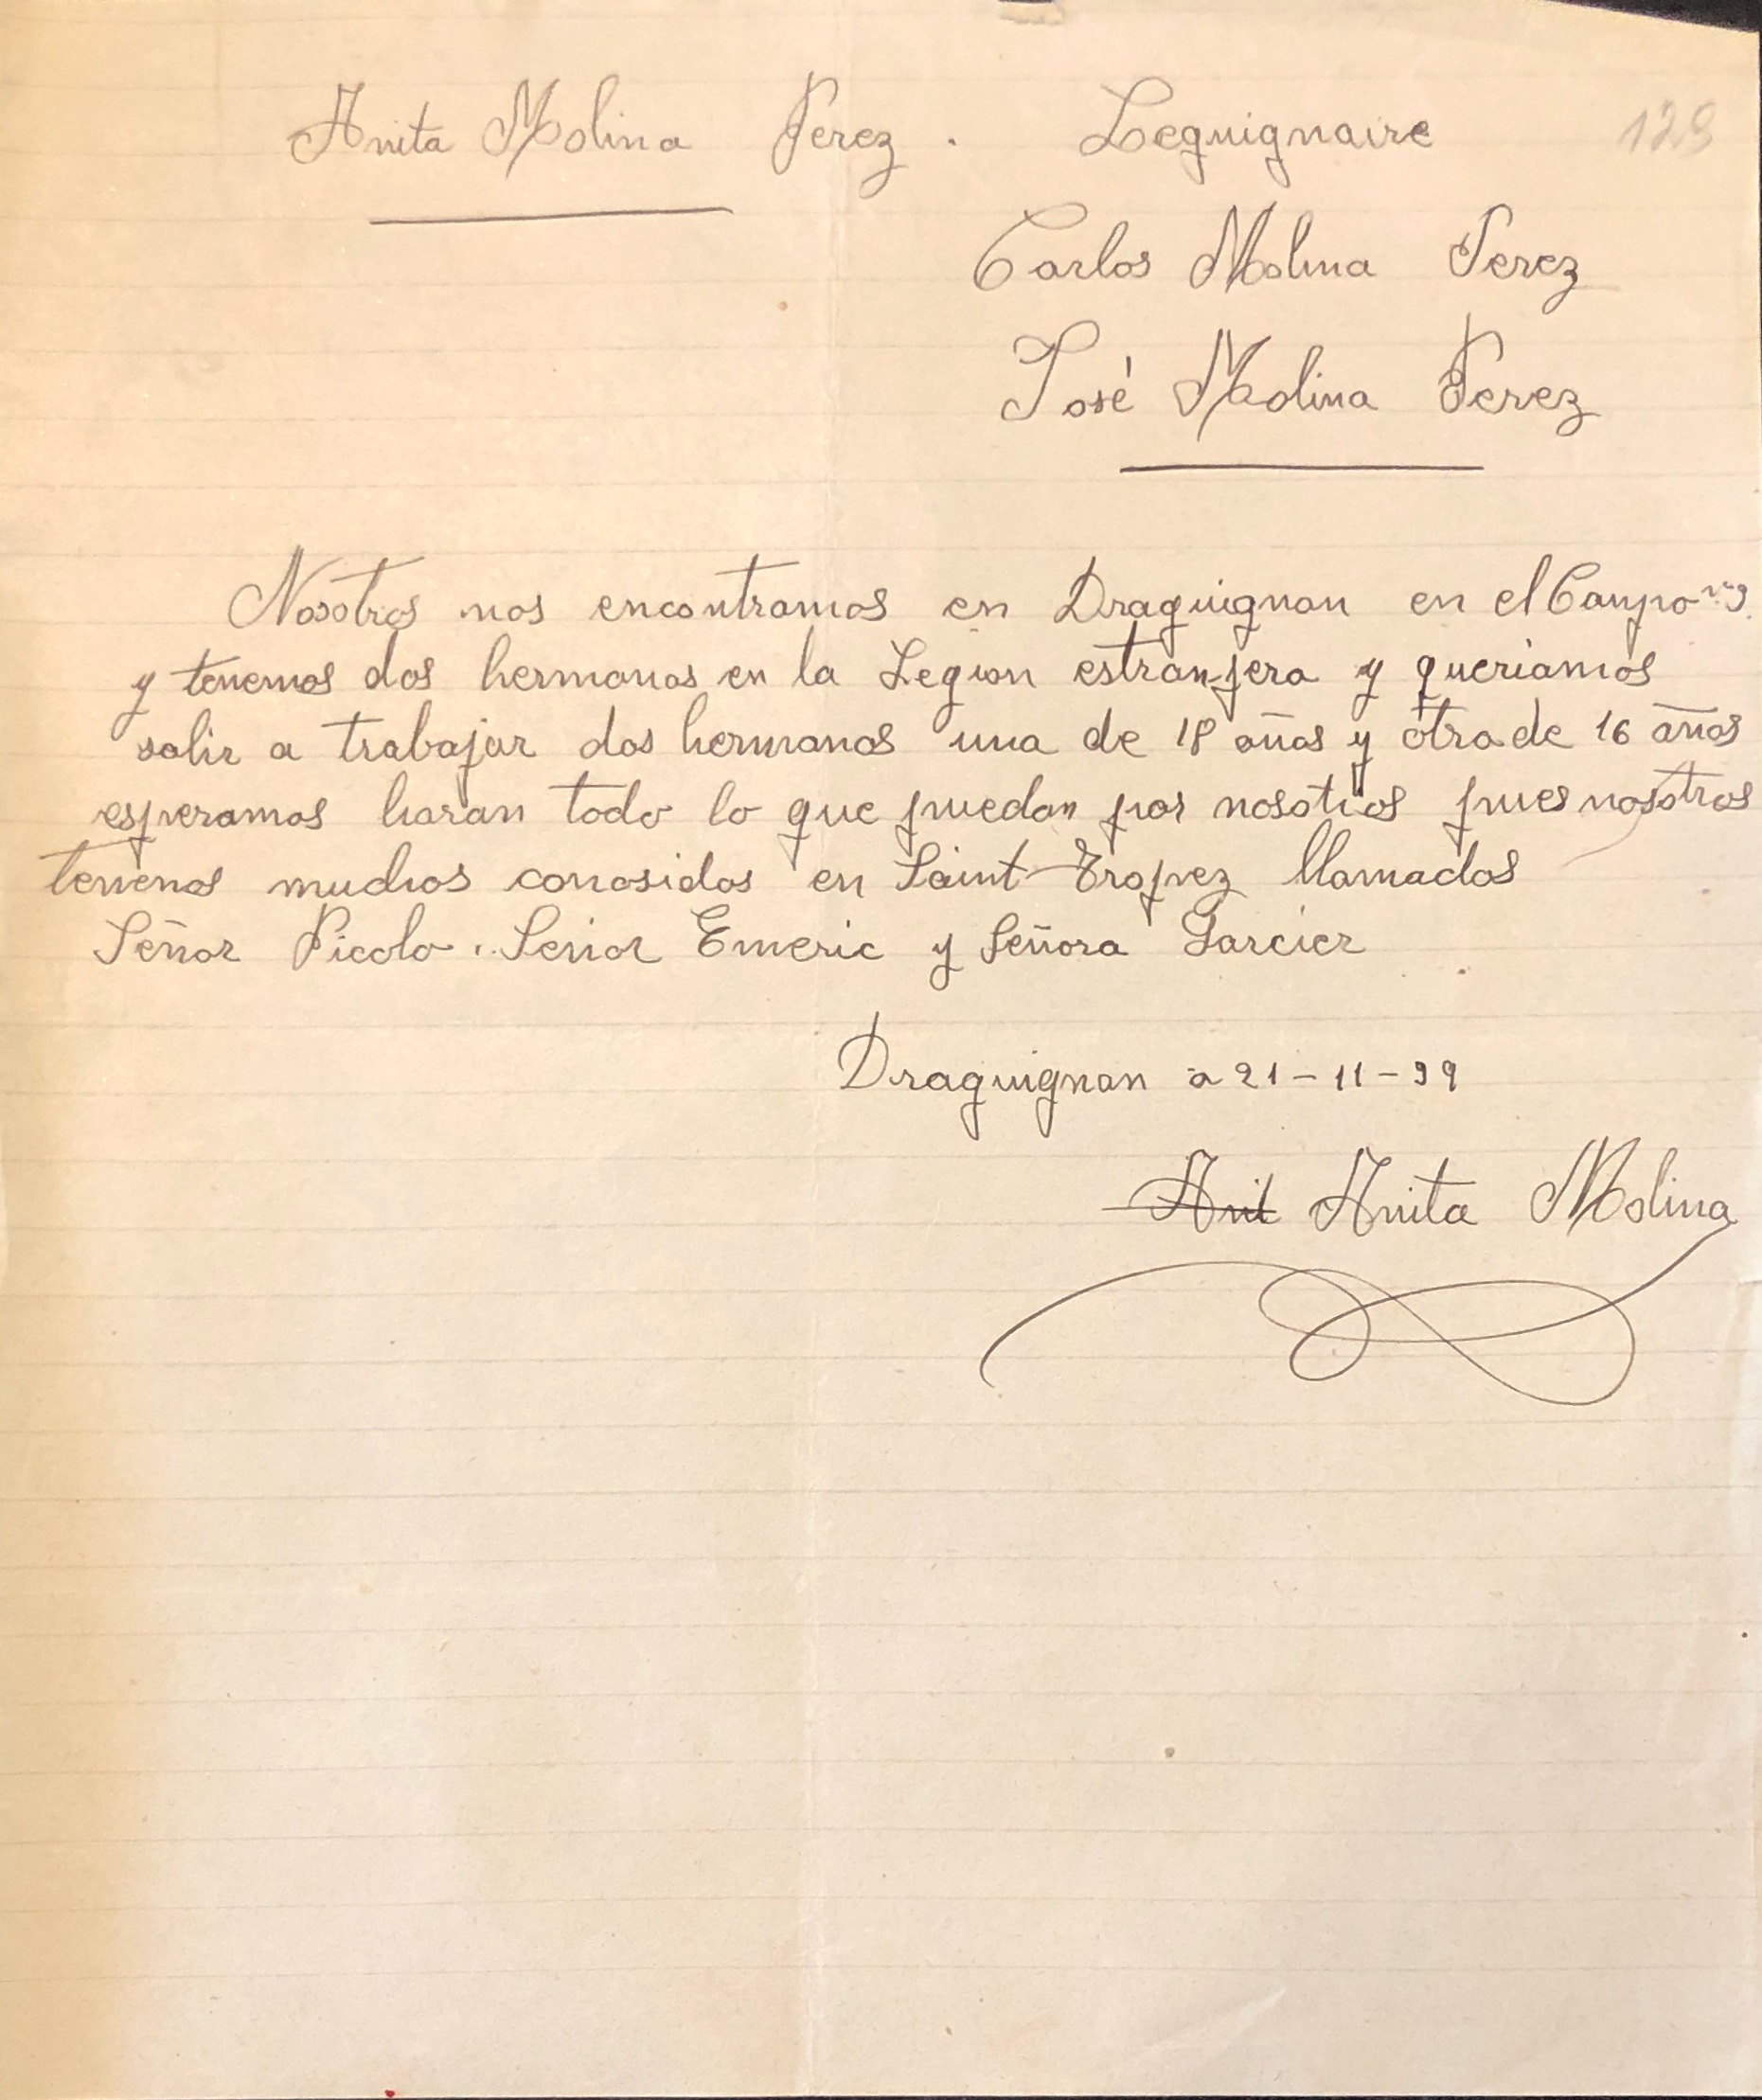 Anita Molina Perez. Leguignaire 129
Carlos Molina Perez
José Molina Perez
Nosotros nos encontramos en Draguignan en el Campo nº 3.
y tenemos dos hermanos en la Legion estranjera y queriamos
salir a trabajar dos hermanas una de 18 años y otra de 16 años
esperamos haran todo lo que puedan por nosotros pues nosotros
tenemos muchos conosidos en Saint Tropez llamados
Señor Picolo. Señor Emeric y Señora Garcier
Draguignan a 21-11-39
Anit Anita Molina